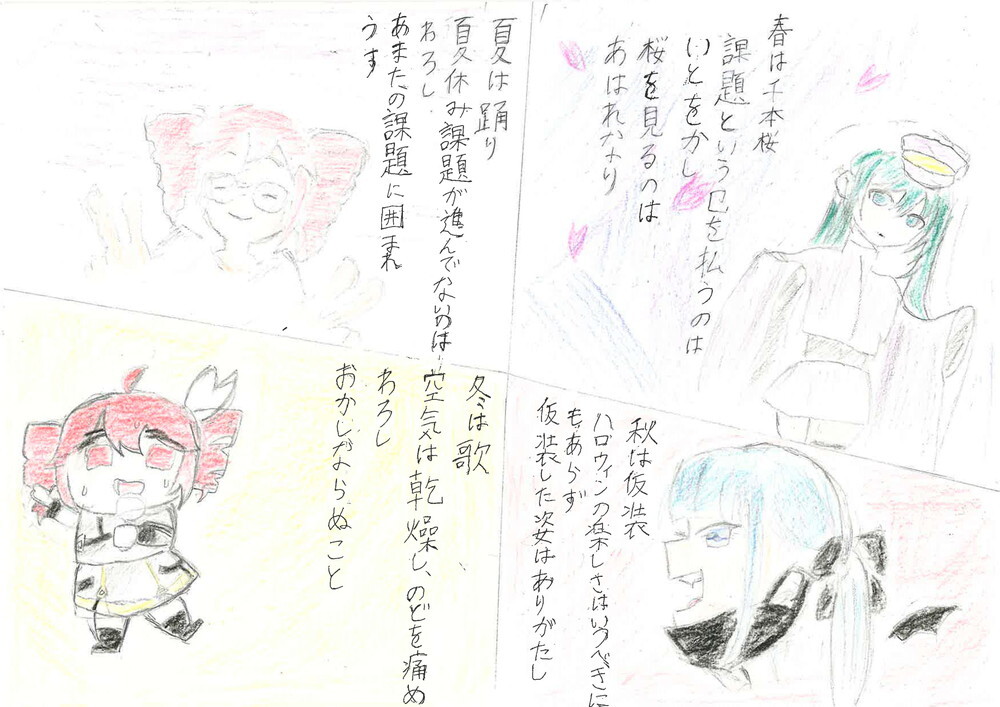 春は千本桜
課題という包を払うのは
いとをかし
桜を見るのは
あはれなり
夏は踊り
夏休み課題が進んでないのは
わろし
あまたの課題に囲まれ
うす
秋は仮装
ハロウィンの楽しさはいうべきに
もあらず
仮装した姿はありがたし
冬は歌
空気は乾燥し、のどを痛め
わろし
おかしがよらぬこと